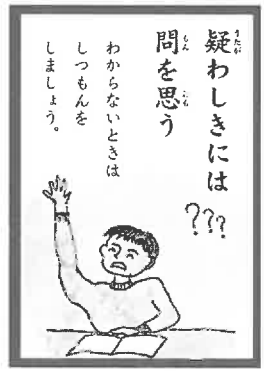 疑わしきには
問を思う
わからないときは
しつもんを
しましょう。
???